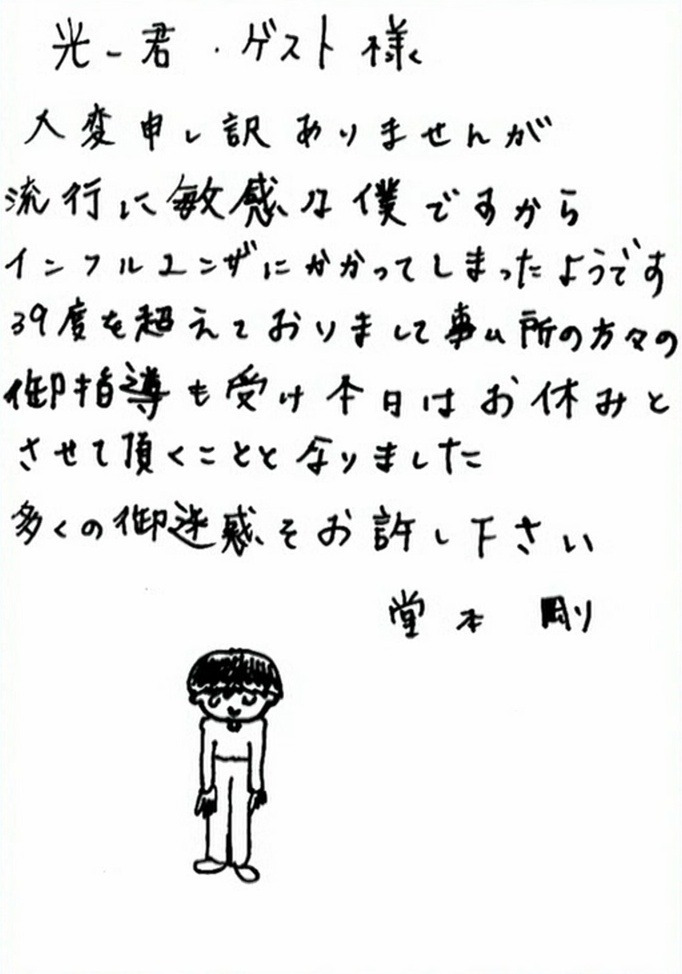 光一君・ゲスト様
大変申し訳ありませんが
流行に敏感な僕ですから
インフルエンザにかかってしまったようです
39度を超えておりまして事ム所の方々の
御指導も受け本日はお休みと
させて頂くことと なりました
多くの御迷惑をお許し下さい
堂本 剛